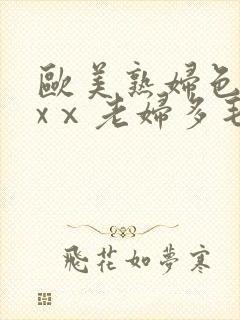 歐美熟婦色
x x 老婦多毛
飛花如夢寒